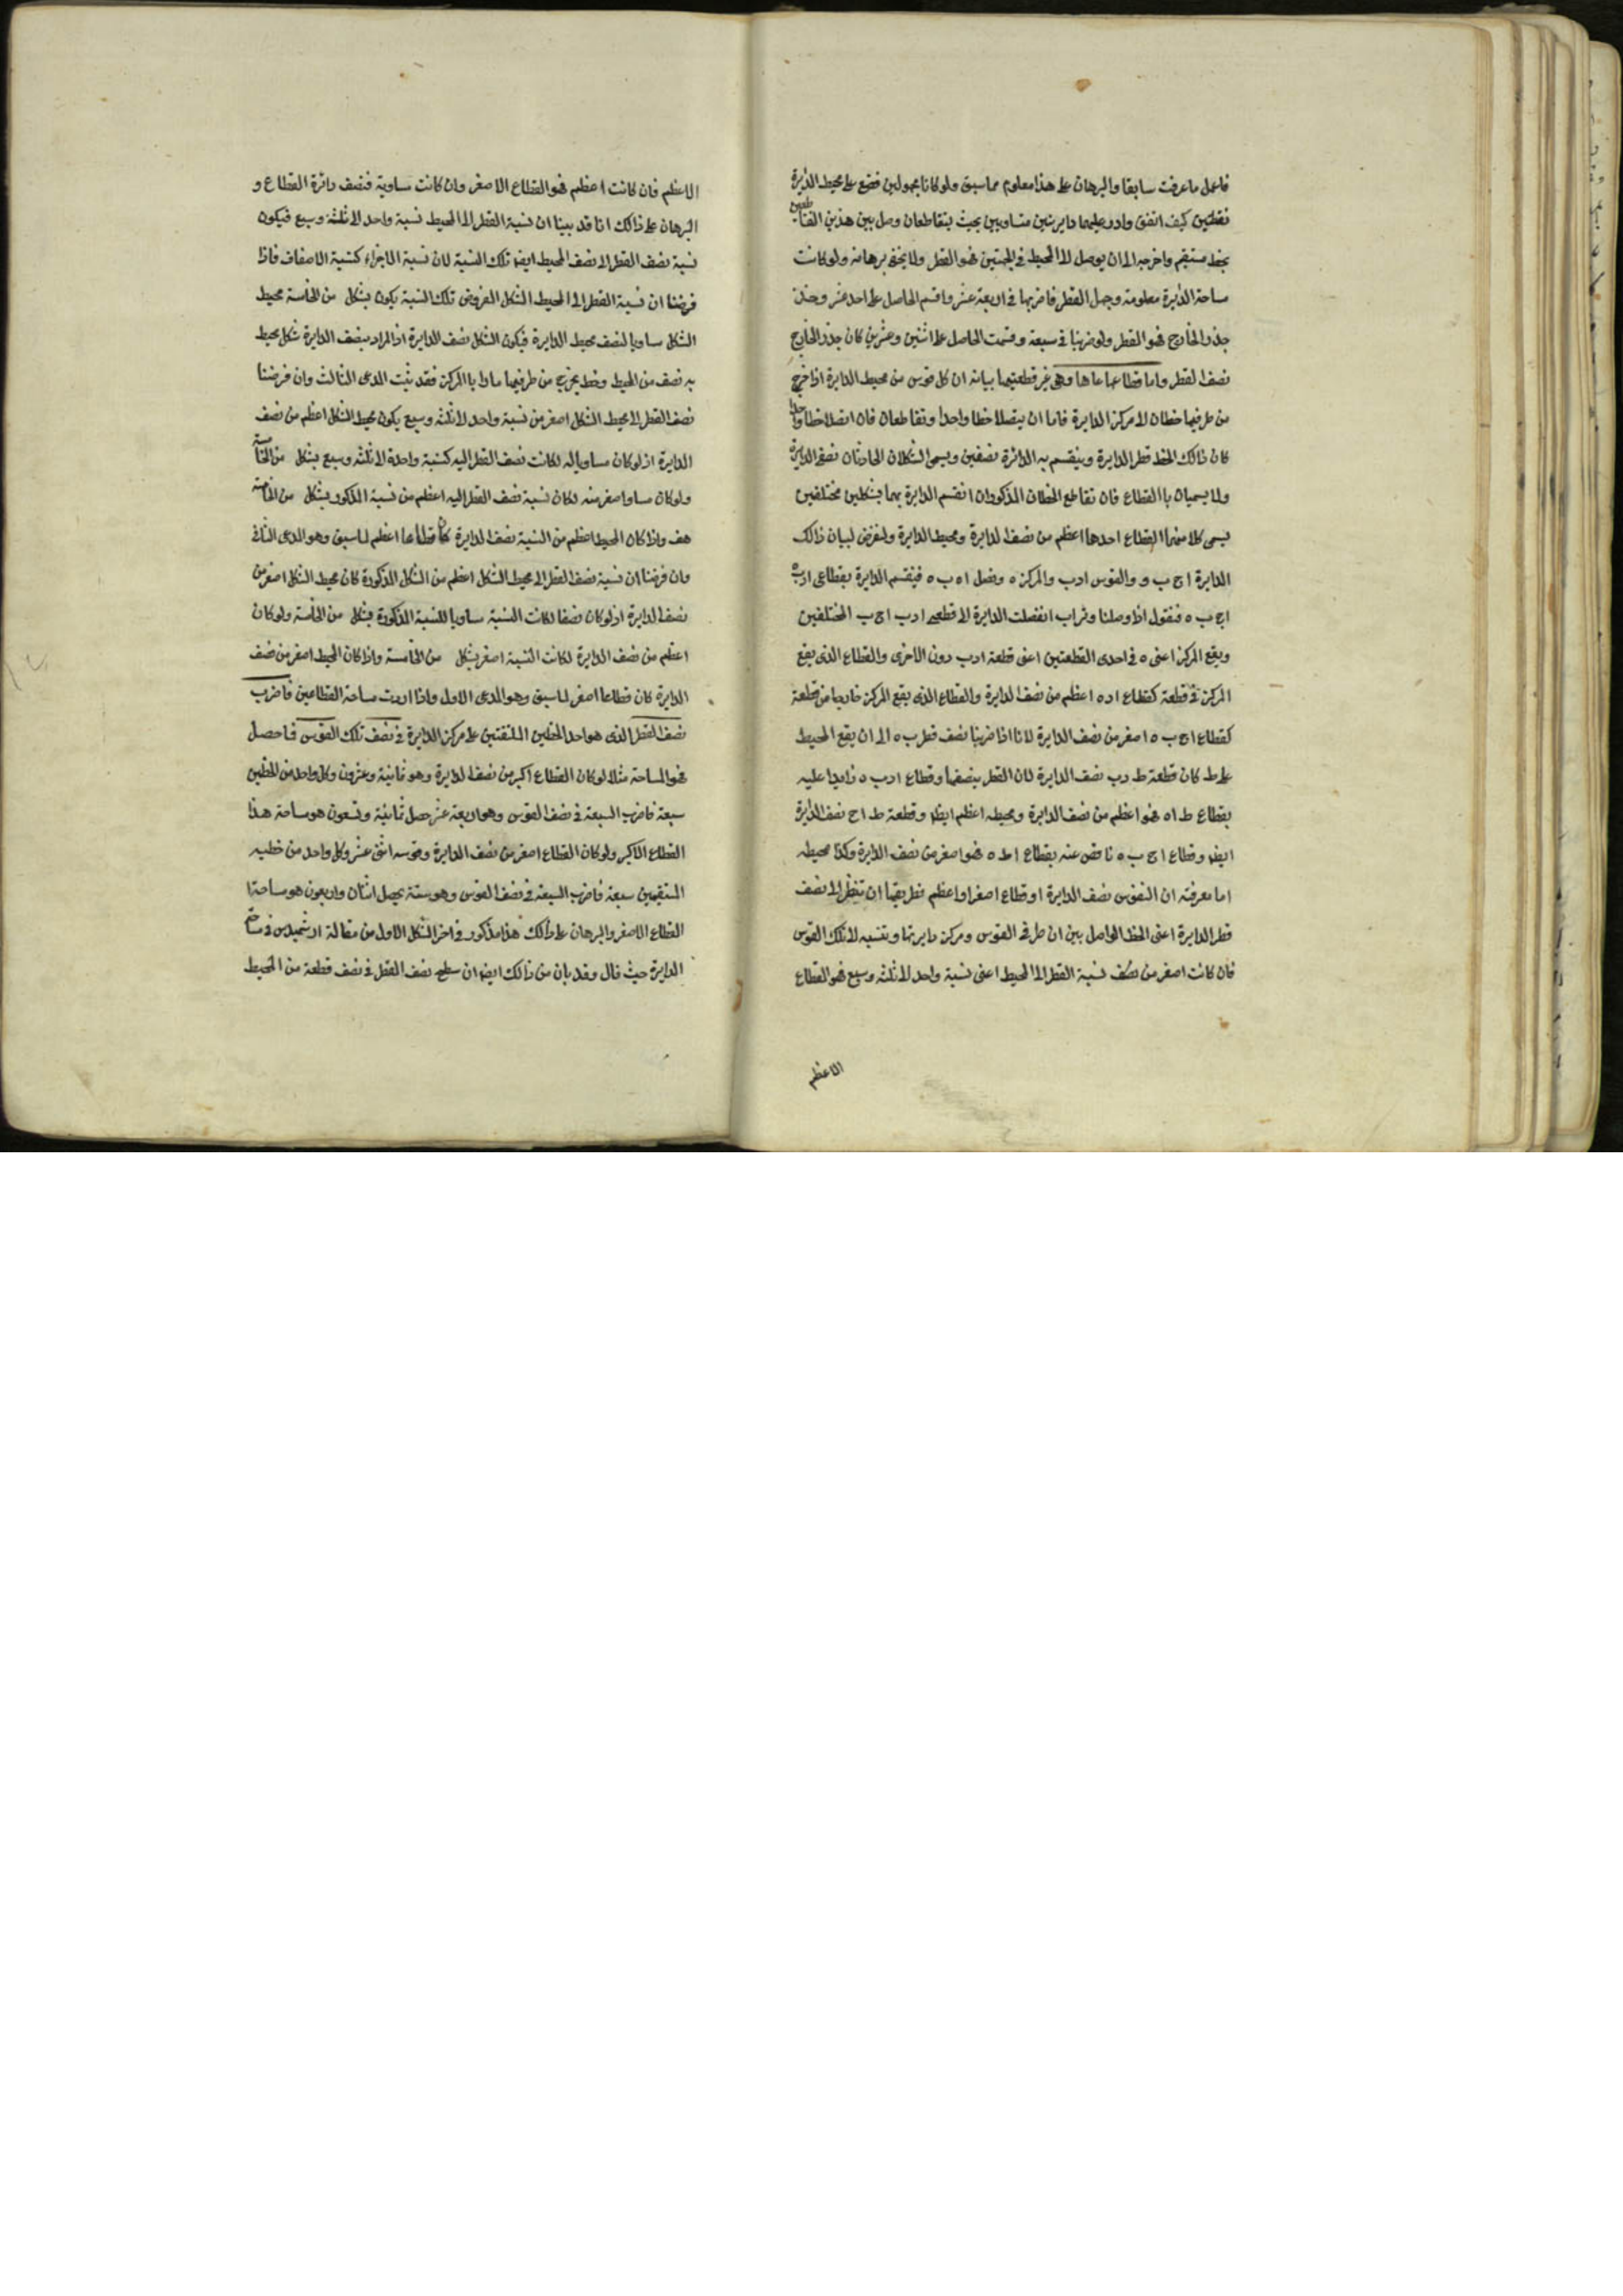 فاعمل ما عرفت سابقا والبرهان على هذا معلوم مما سبق ولو كانا مجهولين فضع على محيط الدايرة
نقطتين كيف اتفق وادر عليهما دايرتين متساويتين بحيث يتقاطعان وصل بين هذين التقاطعين
بخط مستقيم واخرجه الى ان يوصل الى المحيط فى الجهتين فهو القطر ولا يخفى برهانه ولو كانت
مساحة الدايرة معلومة وجهل القطر فاضربها فى اربعة عشر واقسم الحاصل على احد عشر وخذ
جذر الخارج فهو القطر ولو ضربنا فى سبعة وقسمت الحاصل على اثنين وعشرين كان جذر الخارج
نصف القطر واما قطاعاها وهى غير قطعتيها بيانه ان كل قوس من محيط الدايرة اذا خرج
من طرفيها خطان الى مركز الدايرة فاما ان يتصلا خطا واحدا او تقاطعان فان اتصلا خطا واحدا
كان ذالك الخط قطر الدايرة وينقسم به الدائرة نصفين ويسمى الشكلان الحادثان نصفى الدايرة
ولا يسميان با القطاع فان تقاطع الخطان المذكوران انقسم الدايرة بهما بشكلين مختلفين
يسمى كلا منهما القطاع احدهما اعظم من نصف الدايرة ومحيط الدايرة ولنفرض لبيان ذالك
الدايرة ا ج ب و والقوس ادب والمركز ه ونصل ا ه ب ه فينقسم الدايرة بقطاعى ادب ه
اج ب ه فنقول اذا وصلنا وتر اب انفصلت الدايرة الى قطعتى ادب اج ب المختلفين
ويقع المركز اعنى ه فى احدى القطعتين اعنى قطعة ادب دون الاخرى والقطاع الذى يقع
المركز فى قطعة كقطاع اد ه اعظم من نصف الدايرة والقطاع الذى يقع المركز خارجا من قطعة
كقطاع اج ب ه اصغر من نصف الدايرة لانا اذا ضربنا نصف قطر ب ه الى ان يقع المحيط
على ط كان قطعة ط دب نصف الدايرة لان القطر ينصفها وقطاع ادب ه زايدا عليه
بقطاع ط ا ه فهو اعظم من نصف الدايرة ومحيطه اعظم ايضا وقطعة ط اج نصف الدايرة
ايضا وقطاع اج ب ه ناقص عنه بقطاع اط ه فهو اصغر من نصف الدايرة وكذا محيطه
اما معرفته ان القوس نصف الدايرة او قطاع اصغر او اعظم فطريقها ان تنظر الى نصف
قطر الدايرة اعنى الخط الواصل بين ان طرفى القوس ومركز دايرتها وتنسبه الى تلك القوس
فان كانت اصغر من نصف نسبة القطر الى المحيط اعنى نسبة واحد الى ثلثه وسبع فهو القطاع
الاعظم
الاعظم فان كانت اعظم فهو القطاع الاصغر وان كانت مساوية فنصف دائرة القطاع و
البرهان على ذالك انا قد بينا ان نسبة القطر الى المحيط نسبة واحد الى ثلثة وسبع فيكون
نسبة نصف القطر الى نصف المحيط ايضا تلك النسبة لان نسبة الاجزاء كنسبة الاضعاف فاذا
فرضنا ان نسبة القطر الى المحيط الشكل المفروض تلك النسبة يكون بشكل من الخامسة محيط
الشكل مساويا لنصف محيط الدايرة فيكون الشكل نصف الدايرة اذ المراد بنصف الدايرة شكل يحيط
به نصف من المحيط وخط يخرج من طرفيها مارا با المركز فقد ثبت المدعى الثالث وان فرضنا
نصف القطر الى محيط الشكل اصغر من نسبة واحد الى ثلثه وسبع يكون محيط الشكل اعظم من نصف
الدايرة اذ لو كان مساويا له لكانت نصف القطر اليه كنسبة واحدة الى ثلثه وسبع بشكل من الخامسة
ولو كان مساو اصغر منه لكان نسبة نصف القطر اليه اعظم من نسبة المذكور بشكل من الخامسة
هف واذا كان المحيط اعظم من النسبة نصف الدايرة كان قطاعا اعظم لما سبق وهو المدعى الثانى
وان فرضنا ان نسبة نصف القطر الى محيط الشكل اعظم من الشكل المذكورة كان محيط الشكل اصغر من
نصف الدايرة اذ لو كان نصفا لكانت النسبة مساويا للنسبة المذكورة بشكل من الخامسة ولو كان
اعظم من نصف الدايرة لكانت النسبة اصغر بشكل من الخامسة واذا كان المحيط اصغر من نصف
الدايرة كان قطاعا اصغر لما سبق وهو المدعى الاول واذا اردت مساحة القطاعين فاضرب
نصف القطر الذى هو احد الخطين الملتقيتين على مركز الدايرة فى نصف تلك القوس فما حصل
فهو المساحة مثلا لو كان القطاع اكبر من نصف الدايرة وهو ثمانية وعشرون وكل واحد من الخطين
سبعة فاضرب السبعة فى نصف القوس وهو اربعة عشر حصل ثمانية وتسعون هو مساحة هذا
القطاع الاكبر ولو كان القطاع اصغر من نصف الدايرة وقوسه اثنى عشر وكل واحد من خطيه
المستقيمين سبعة فاضرب السبعة فى نصف القوس وهو ستة يحصل اثنان واربعون هو مساحة ا
القطاع الاصغر والبرهان على ذالك هذا مذكور فى اخر الشكل الاول من مقالة ارشميدس فى مساحة
الدايرة حيث قال وقد بان من ذالك ايضا ان سطح نصف القطر فى نصف قطعة من المحيط